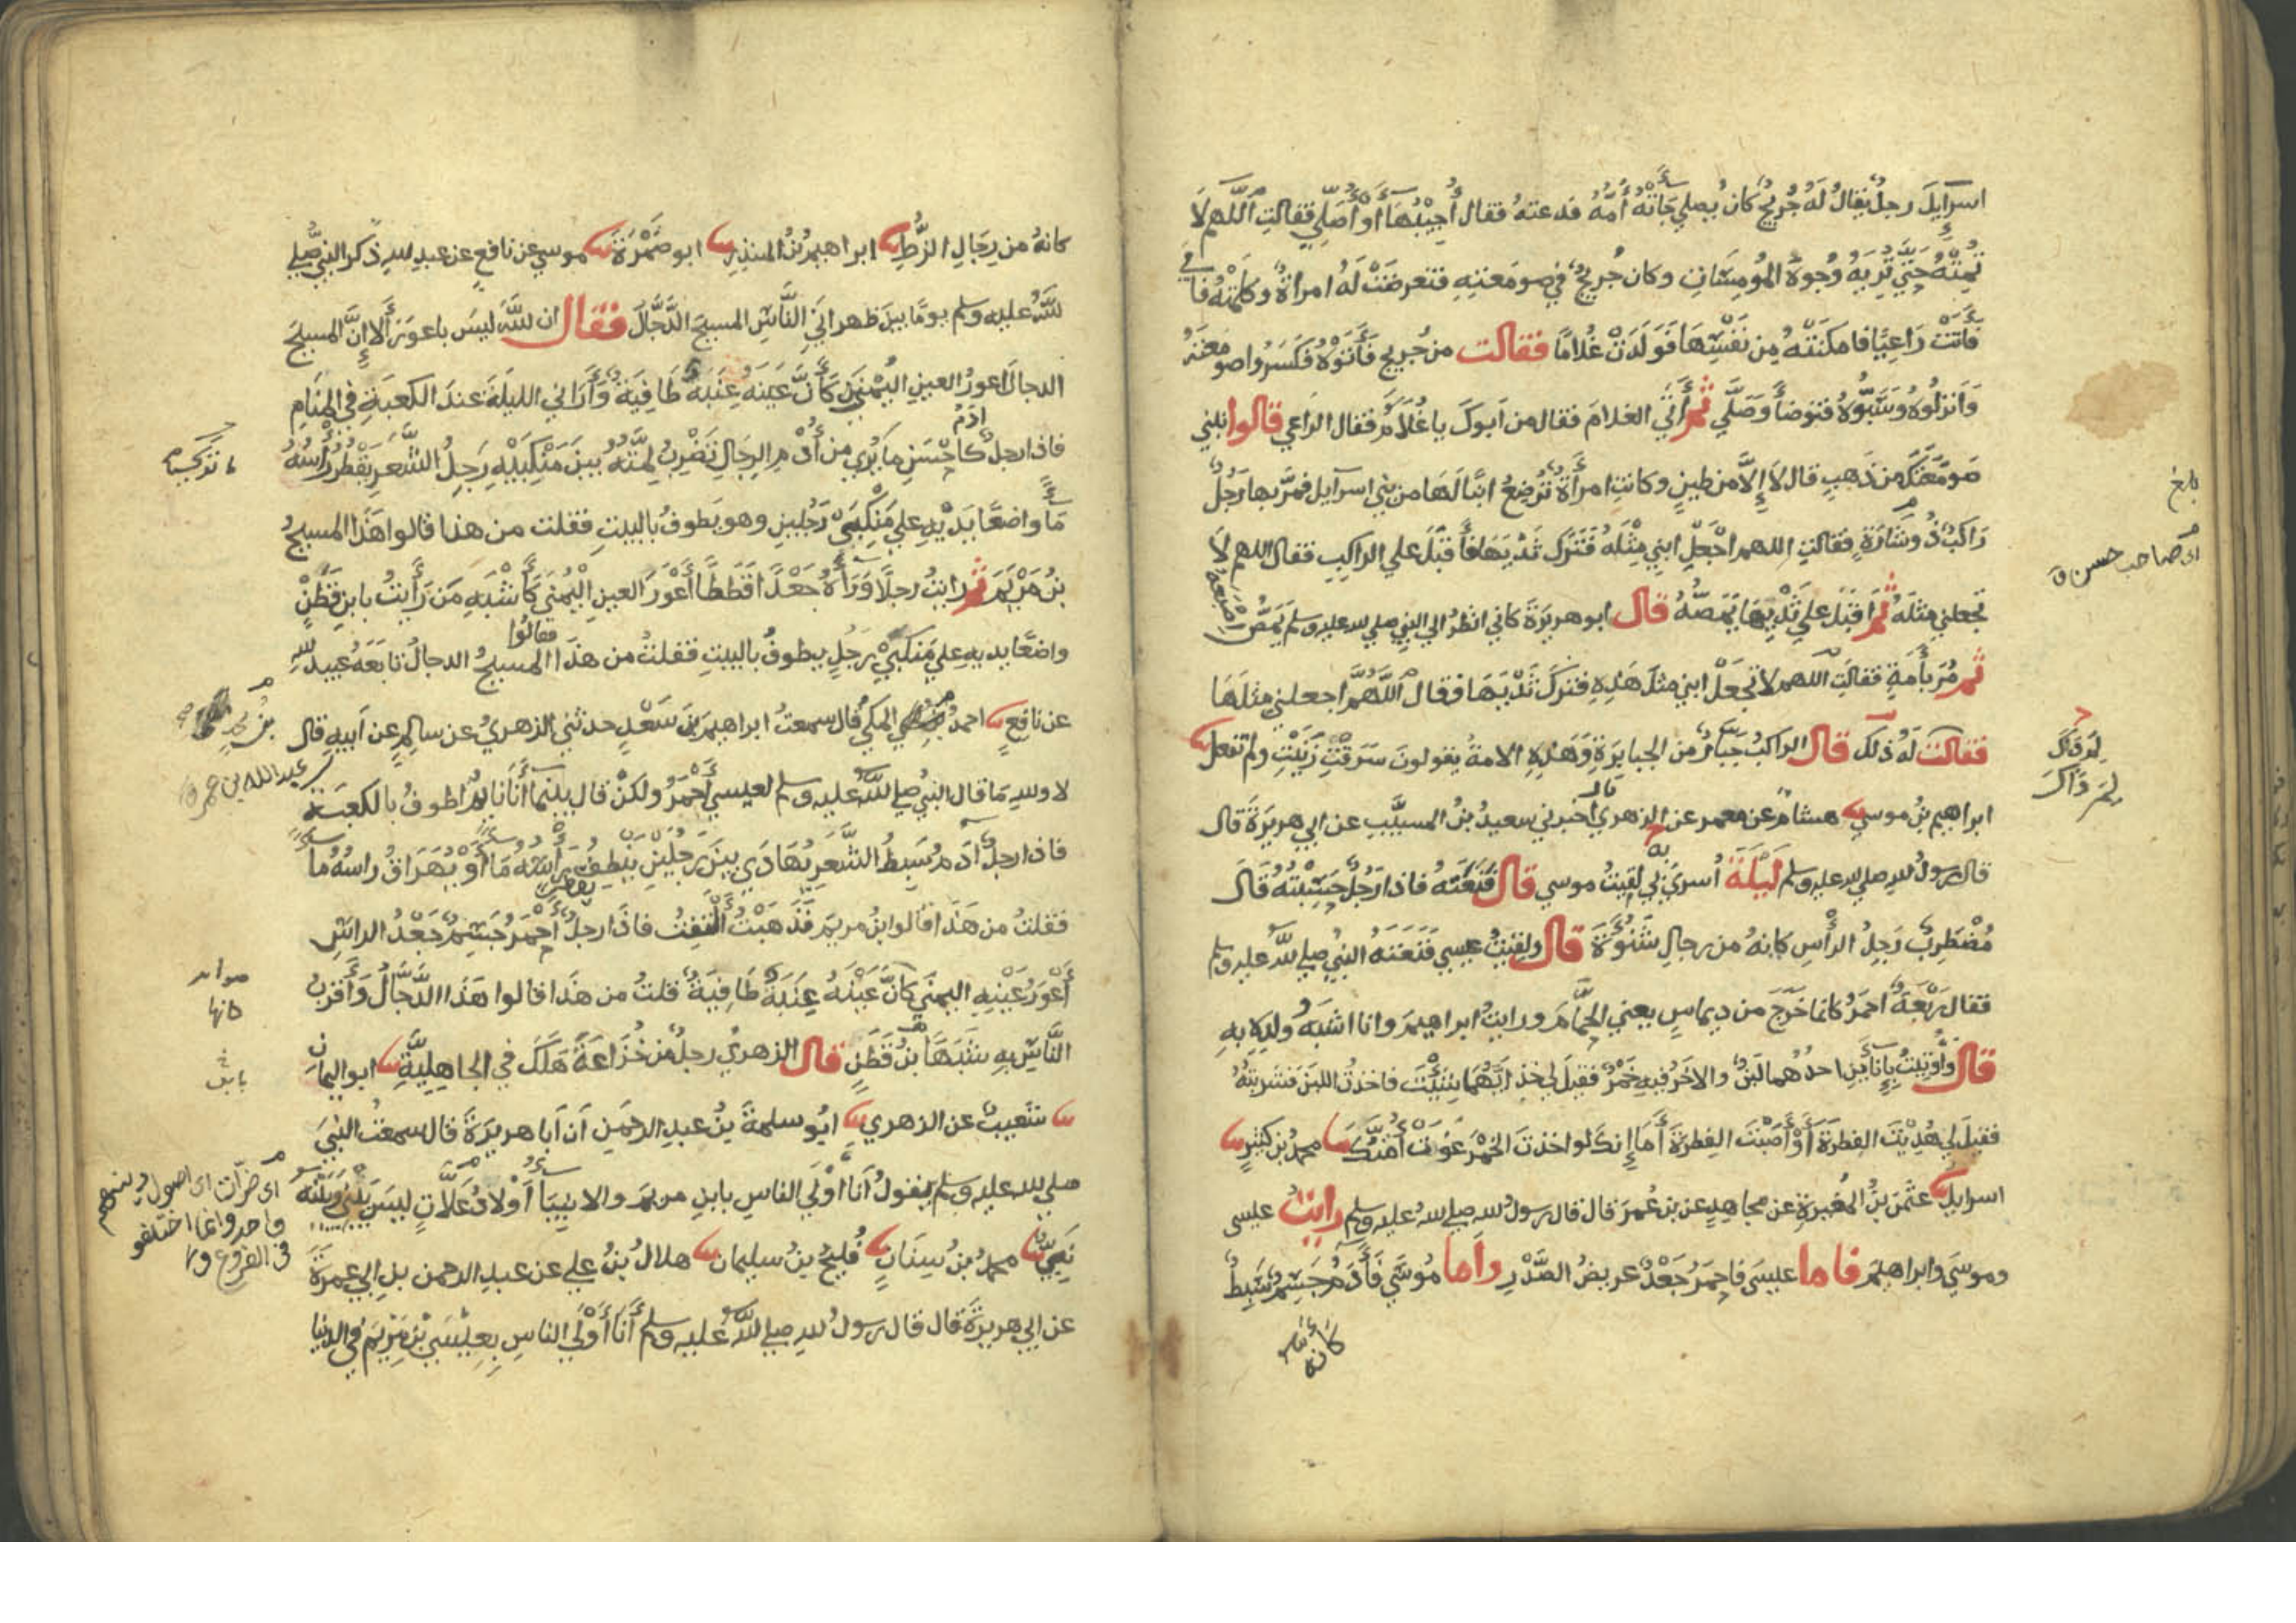 اسرآيل رجل يقال له جُريج كان يصلي جاته أمّه فدعته فقال أجيبها أو أصلّي فقالت اللهم لا
تمته حتي تريه وجوه المومسات وكان جريج في صومعته فتعرضت له امراة وكلمته فابي
فاتت راعيًا فامكنته من نفسها فولدت غلامًا فقالت من جريج فأتوه فكسروا صومعته
وانزلوه وسبّوه فتوضأ وصلّي ثم أتي الغلام فقال من ابوك يا غلام فقال الراعي قالوا نبني
صومعتك من ذهب قال لا إلا من طين وكانت امرأة ترضع ابنا لها من بني اسرآيل فمرّ بها رجل
راكب ذو شارة فقالت اللهم اجعل ابني مثله فترك ثديها فاقبل علي الراكب فقال اللهم لا
تجعلني مثله ثم اقبل علي ثديها يمصّه قال ابو هريرة كاني انظر الي النبي صلي لله عليه وسلم يمصّ اصبعه
ثم مُرّ بأمة فقالت اللهم لا تجعل ابني مثل هذه فترك ثديها فقال اللهمّ اجعلني مثلها
فقالت له ذلك قال الراكب جبّار من الجبابرة وهذه الامة يقولون سرقت زنيت ولم تفعل
ابراهيم بن موسي هشام عن معمر عن الزهري قال اخبرني سعيد بن المسيّب عن ابي هريرة قال
قال رسول لله صلي لله عليه وسلم ليلة أسري بي لقيت موسي قال فنعته فاذا رجل حسبته قال
مضطرب رجل الرأس كانه من رجال شنوءة قال ولقيت عيسي فنعته النبي صلي لله عليه وسلم
فقال ربعة احمر كانما خرج من ديماس يعني الحمّام ورايت ابراهيم وانا اشبه ولده به
قال وأوتيت بإنأين احدهما لبن والاخر فيه خمر فقيل لي خذ ايهما شئت فاخذت اللبن فشربته
فقيل لي هديت الفطرة أو أصبت الفطرة أما إنك لو اخذت الخمر غوت أمتك محمد بن كثير
اسرايل عثمن بن المغيرة عن مجاهد عن بن عمر قال قال رسول لله صلي لله عليه وسلم رايت عيسى
وموسي وابراهيم فاما عيسى فاحمر جعد عريض الصدر واما موسي فأدم جسيم سبط
كانه
بلغ
اي صاحب حسن
لم ذاك
كانه من رجال الزّط ابراهيم بن المنذر ابو ضمرة موسي عن نافع عن عبد لله ذكر النبي صلي
لله عليه وسلم يومًا بين ظهراني الناس المسيح الدّجّال فقال ان لله ليس باعور ألا إنّ المسيح
الدجال اعور العين اليمني كأنّ عينه عنبة طافية وأراني الليلة عند الكعبة في المنام
فاذا رجل ادم كاحسن ما يري من أدم الرجال تضرب لمته بين منكبيه رجل الشعر يقطر راسه
مأ واضعًا يديه علي منكبي رجلين وهو يطوف بالبيت فقلت من هذا قالوا هذا المسيح
بن مريم ثم رايت رجلًا ورأه جعدًا قططًا أعور العين اليمني كأشبه من رأيت بابن قطن
واضعًا يديه علي منكبي رجل يطوف بالبيت فقلت من هذا فقالوا المسيح الدجال تابعه عبيد لله
عن نافع احمد المكي قال سمعت ابراهيم بن سعد حدثني الزهري عن سالم عن ابيه قال
لا ولله ما قال النبي صلي لله عليه وسلم لعيسي أحمر ولكن قال بينما أنا نايم اطوف بالكعبة
فاذا رجل ادم سبط الشعر يهادي بين رجلين ينطف رأسه مأ أو يهراق راسه مأ
فقلت من هذا قالوا ابن مريم فذهبت ألتفت فاذا رجل أحمر جسيم جعد الراس
أعور عينه اليمني كأنّ عينه عنبة طافية قلت من هذا قالوا هذا الدّجّال وأقرب
النّاس به شبها بن قطن قال الزهري رجل من خزاعة هلك في الجاهليّة ابو اليمان
شعيب عن الزهري ابو سلمة بن عبد الرحمن أن أبا هريرة قال سمعت النبي
صلي لله عليه وسلم يقول أنا أولي الناس بابن مريم والانبيأ أولاد علّات ليس بيني وبينه
نبيّ محمد بن سنان فليح بن سليمان هلال بن علي عن عبد الرحمن بن ابي عمرة
عن ابي هريرة قال قال رسول لله صلي لله عليه وسلم أنا أولي الناس بعيسي بن مريم في الدنيا
عبد الله بن عمر
كانها
اي ضرات اي اصول دينهم
واحد وانما اختلفو
في الفروع